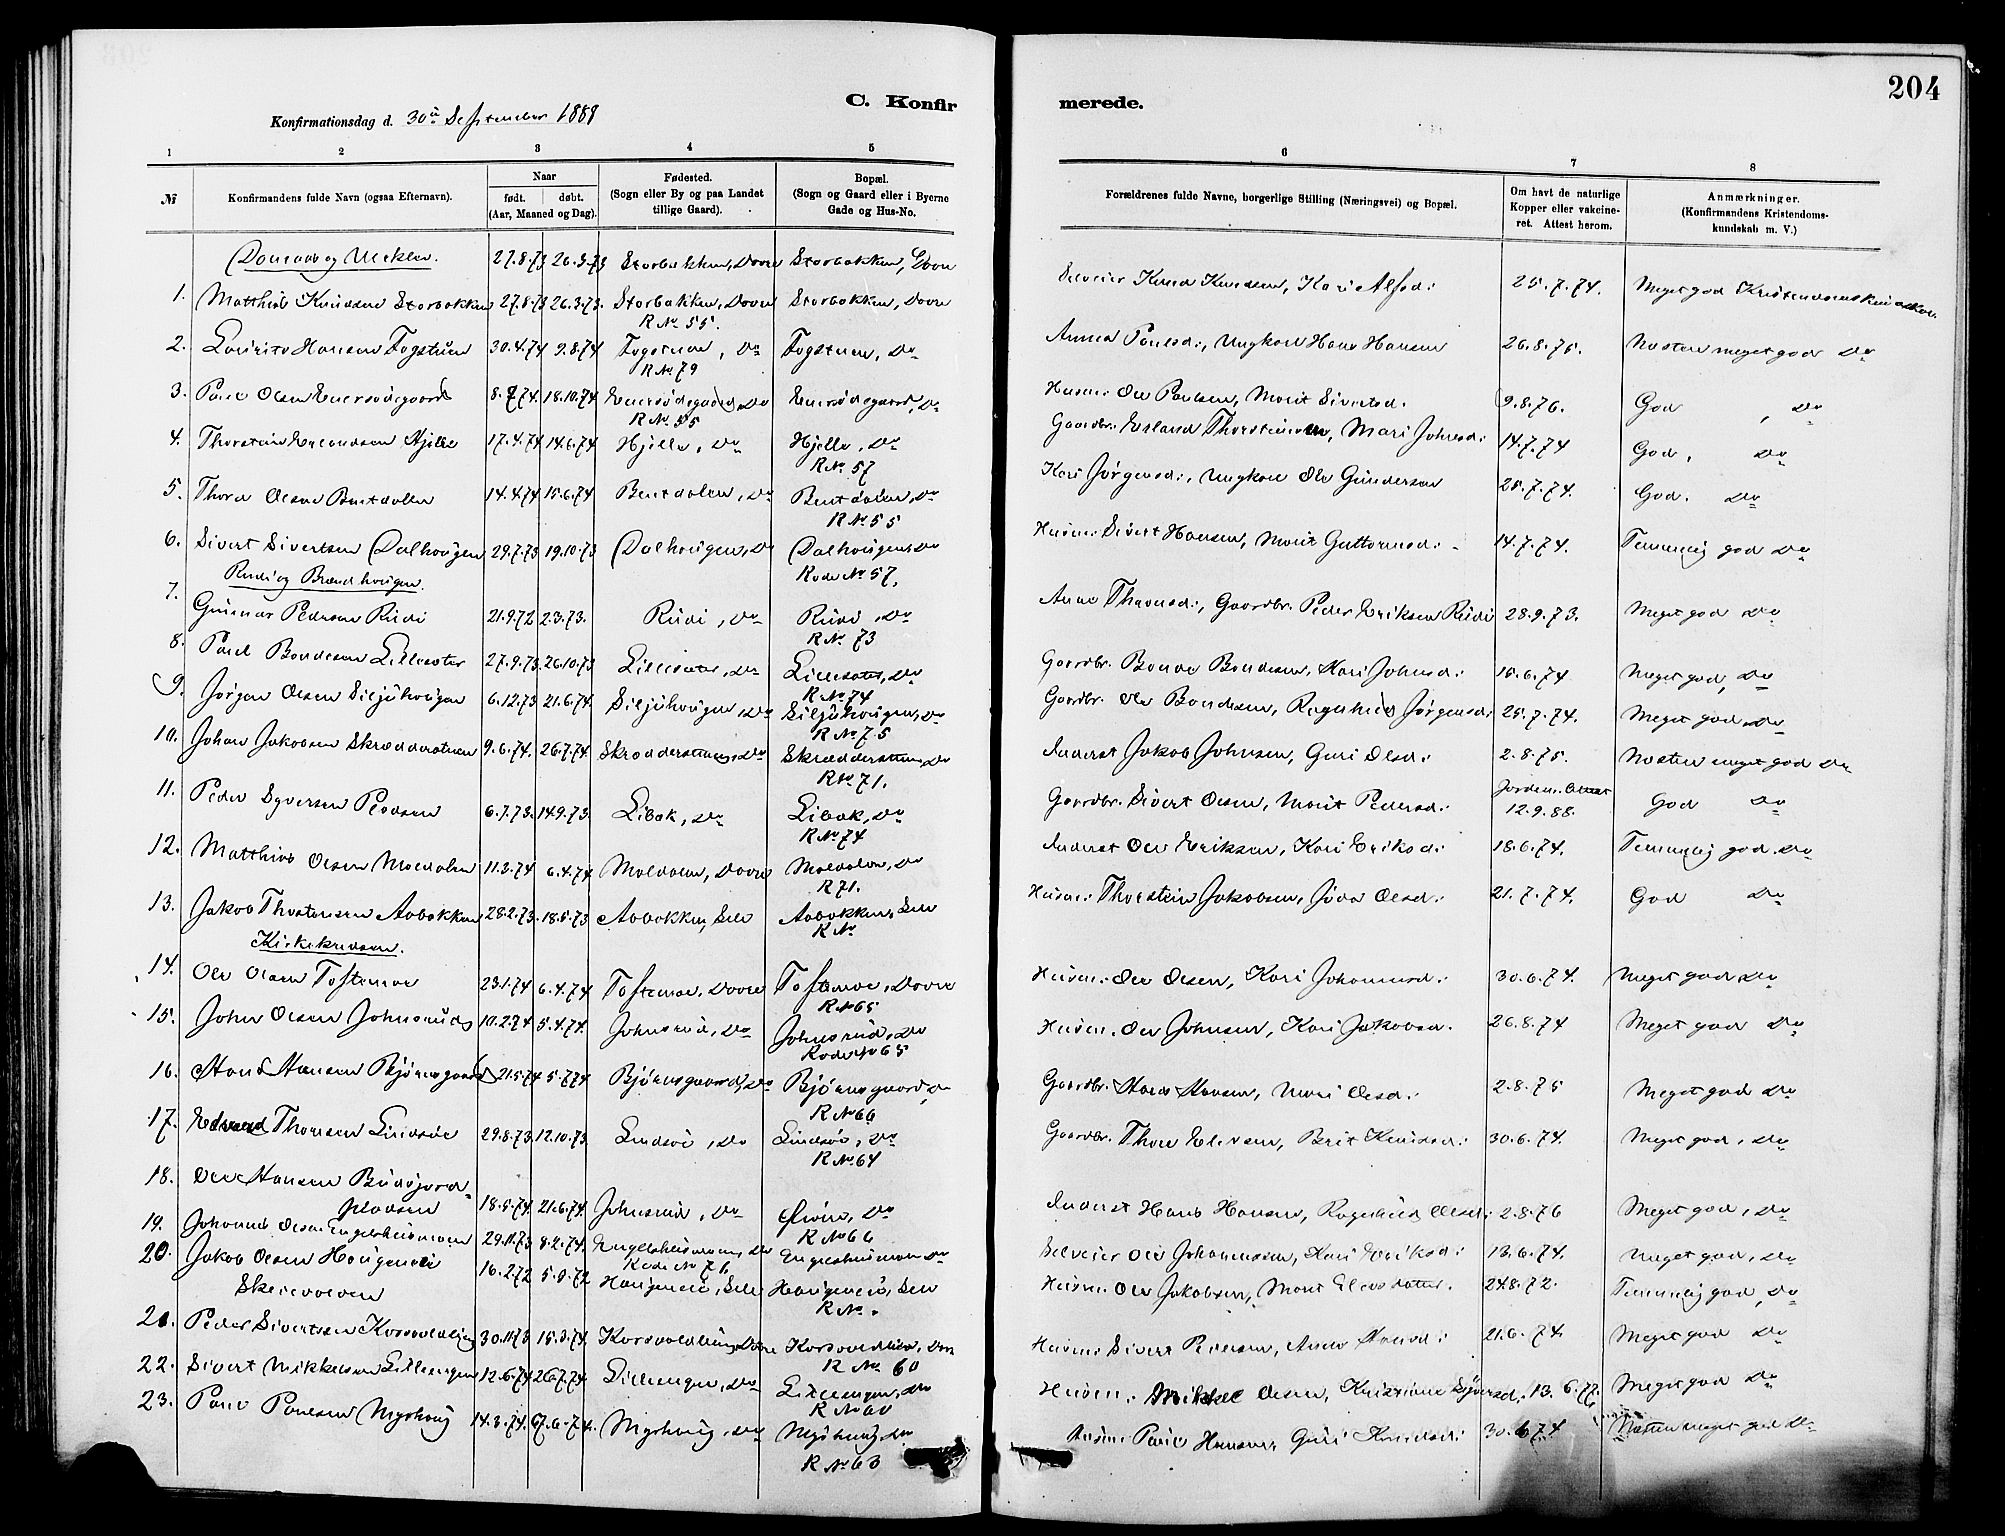 204
C. Konfir
merede.
Konfirmationsdag d. 30te September 1888
1 2 3 4 5 6 7 8
№
Konfirmandens fulde Navn (ogsaa Efternavn).
Naar
født. døbt.
(Aar, Maaned og Dag).
Fødested.
(Sogn eller By og paa Landet
tillige Gaard).
Bopæl.
(Sogn og Gaard eller i Byerne
Gade og Hus-No.
Forældrenes fulde Navne, borgerlige Stilling (Næringsvei) og Bopæl.
Om havt de naturlige
Kopper eller vakcine-
ret. Attest herom.
Anmærkninger.
(Konfirmandens Kristendoms-
kundskab m. V.)
27.8.73 26.3.73 Storbakken, Dovre Storbakken, Dovre
1. Matthias Knudsen Storbakken 27.8.73 26.3.73. Storbakken, Dovre Storbakken, Dovre Selveier Knud Knudsen, Kari Alfsd: 25.7.74. Meget god Kristendomskundskab.
R No 55.
2. Hansen Fogstuen 30.4.74 9.8.74 Fogstuen, Do Fogstuen, Do Anna Paulsd:, Ungkarl Hans Hansen 26.8.75. Næsten meget god Do
R No 79
3. Paul Olsen 8.7.74. 18.10.74 Husm: Ole Paulsen, Marit Sivertsd. 9.8.76. God, Do
R No 55
4. Thorstein Erlandsen Hjelle 17.4.74 14.6.74 Hjelle, Do Hjelle, Do Gaardbr. Erland Thorsteinsen, Mari Johnsd: 14.7.74 God, Do
R No 57
5. Thord Olsen Bentdalen 14.4.74 15.6.74 Bentdalen, Do Bentdalen, Do Kari Jørgensd:, Ungkarl Ole Gundersen 25.7.74. God. Do
R No 55
6. Sivert Sivertsen Dalhougen 29.7.73 19.10.73 Dalhougen, Do Dalhougen, Do Husm: Sivert Hansen, Marit Guttormsd: 14.7.74. Temmelig god Do
Rode No 57.
Rudi og Brændhougen.
7. Gunnar Pedersen Rudi 21.9.72 2.3.73. Rudi, Do Rudi, Do Anne Thorsd:, Gaardbr. Peder Eriksen Rudi 28.9.73. Meget god Do
R No 73
8. Paul Bondesen Lillesæter 27.9.73 26.10.73 Lillesæter, Do Lillesæter, Do Gaardbr. Bonde Bondesen, Kari Johnsd: 15.6.74 Meget god, Do
R No 74
9. Jørgen Olsen Siljuhougen 6.12.73 21.6.74. Siljuhougen, Do Siljuhougen, Do Gaardbr. Ole Bondesen, Ragnhild Jørgensd: 25.7.74. Meget god, Do
R No 75
10. Johan Jakobsen Skrædderstuen 9.6.74. 26.7.74. Skrædderstuen, Do Skrædderstuen, Do Inderst Jakob Johnsen, Guri Olsd: 2.8.75. Næsten meget god Do
R No 71.
11. Peder Syversen Pladsen 6.7.73. 14.9.73. Libak, Do Libak, Do Gaardbr. Sivert Olsen, Marit Pedersd: 12.9.88. God Do
R No 74
12. Matthias Olsen Moldalen 11.3.74 6.4.74 Moldalen, Dovre Moldalen, Do Inderst Ole Eriksen, Kari Eriksd: 18.6.74. Temmelig god Do
R 71.
13. Jakob Thorstensen Aabakken 28.2.73. 18.5.73 Aabakken, Sel Aabakken, Sel Husm: Thorstein Jakobsen, Olsd: 21.7.74. God Do
R No
Kirkekredsen.
14. Ole Olsen Toftemoe 23.1.74 6.4.74 Toftemoe, Dovre Toftemoe, Dovre Husm: Ole Olsen, Kari Johannesd: 30.6.74. Meget god Do
R No 65
15. John Olsen Johnsrud 10.2.74 5.4.74. Johnsrud, Do Johnsrud, Do Husm: Ole Johnsen, Kari Jakobsd. 26.8.74 Meget god Do
Rode No 65
16. Hans Hansen Bjørnsgaard 21.5.74 5.7.74 Bjørnsgaard, Do Bjørnsgaard, Do Gaardbr. Hans Hansen, Mari Olsd: 2.8.75 Meget god Do
R No 66
17. Edvard Thoresen Lindsøe 29.8.73 12.10.73 Lindsøe, Do Lindsøe, Do Gaardbr. Thore Elevsen, Brit Knudsd: 30.6.74. Meget god, Do
R No 64
18. Ole Hansen Budsjord-
pladsen 18.5.74. 21.6.74. Johnsrud, Do Do Inderst Hans Hansen, Ragnhild Olsd: 2.8.76 Meget god, Do
R No 66
19. Johannes Olsen Engelshusmoen 29.11.73 8.2.74. Engelshusmoen, Do Engelshusmoen Do Selveier Ole Johannessen, Kari Eriksd: 13.6.74. Meget god, Do
Rode No 76
20. Jakob Olsen Hougeneie 16.2.72 5.9.72 Hougeneie, Sel Hougeneie, Sel Husm: Ole Jakobsen, Marit Elevsdatter. 24.8.72. Temmelig god, Do
R No.
21. Peder Sivertsen 30.11.73 15.3.74. Dovre Husm: Sivert Pedersen, 21.6.74. Meget god Do
R No 60
22. Sivert Mikkelsen Lilleengen 12.6.74 26.7.74 Lilleengen, Do Lilleengen, Do Husm: Mikkel Olsen, Kristiane Syversd. 13.6.77. Meget god Do
R No 60
23. Paul Paulsen Myrhoug 14.3.74. 7.6.74. Myrhoug, Do Myrhoug, Do Husm: Paul Hansen, Guri Knudsd: 30.6.74 Næsten meget god Do
R No 63